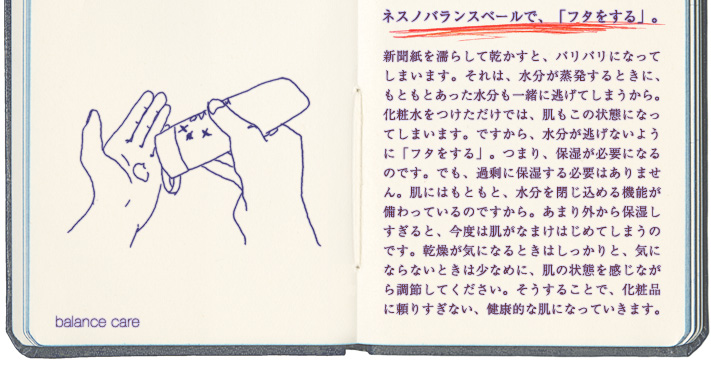 balance care
ネスノバランスベールで、「フタをする」。
新聞紙を濡らして乾かすと、バリバリになって
しまいます。それは、水分が蒸発するときに、
もともとあった水分も一緒に逃げてしまうから。
化粧水をつけただけでは、肌もこの状態になっ
てしまいます。ですから、水分が逃げないよう
に「フタをする」。つまり、保湿が必要になる
のです。でも、過剰に保湿する必要はありませ
ん。肌にはもともと、水分を閉じ込める機能が
備わっているのですから。あまり外から保湿し
すぎると、今度は肌がなまけはじめてしまうの
です。乾燥が気になるときはしっかりと、気に
ならないときは少なめに、肌の状態を感じなが
ら調節してください。そうすることで、化粧品
に頼りすぎない、健康的な肌になっていきます。